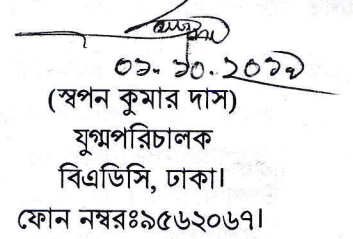 ০১.১০.২০১৭
(স্বপন কুমার দাস)
যুগ্মপরিচালক
বিএডিসি, ঢাকা।
ফোন নম্বরঃ৯৫৬২০৬৭।